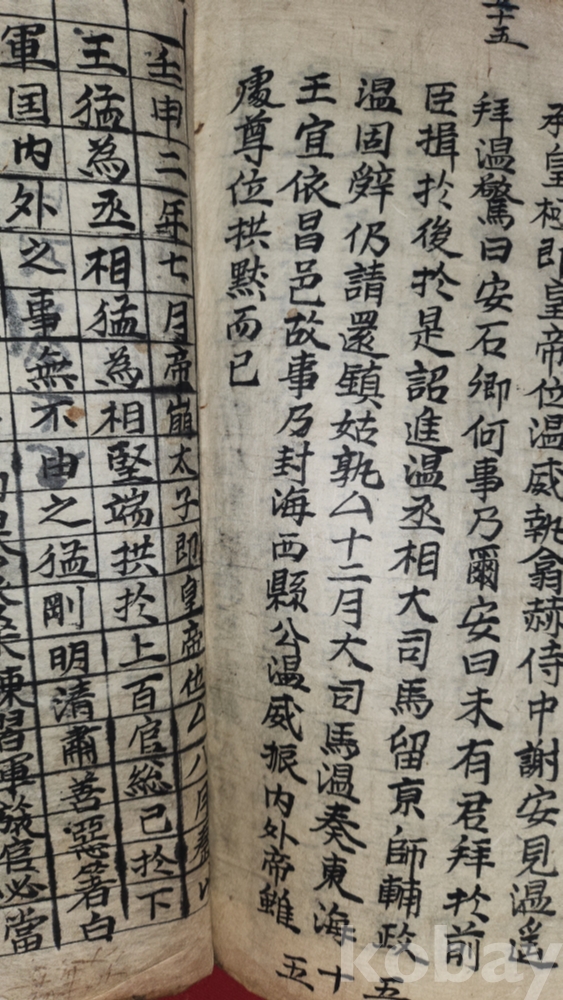 五十五
承皇極即皇帝位溫威執翕赫侍中謝安見溫遙
拜溫驚曰安石卿何事乃爾安曰未有君拜扵前
臣揖扵後扵是詔進溫丞相大司馬留亰師輔政
溫固辝仍請還鎮姑孰厶十二月大司馬溫奏東海
王宜依昌邑故事乃封海西縣公溫威振內外帝雖
處尊位拱默而已
五十五
壬申二年七月帝崩太子即皇帝位厶八月秦以
王猛為丞相猛為相堅端拱扵上百官総己扵下
軍国內外之事無不由之猛剛明清肅善惡著白
練習軍旅官必當
kobay